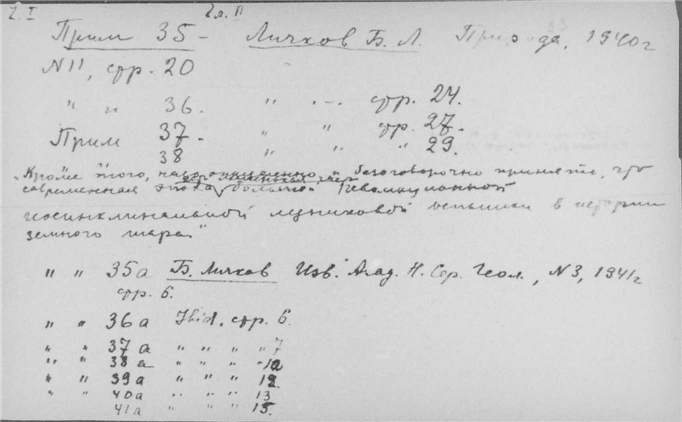 2. I
Гл. II
Прим 35 - Личков Б. Л. Природа, 1940г
N11, стр. 20
" " 36. " " стр. 24.
Прим 37 " " стр. 27.
38 " " " 29.
"Кроме того, безоговорочно принять, что
современная эпоха большой революционной
геосинклинальной ледниковой вспышки в истории
земного шара."
" " 35а Б. Личков Изв. Акад. Н. Сер. Геол., N3, 1941г
стр. 6.
" " 36а Ibid, стр. 6.
" " 37а " " " " 7
" " 38а " " " -12
" " 39а " " " 12
" " 40а " " " 13
41а " " " 15.